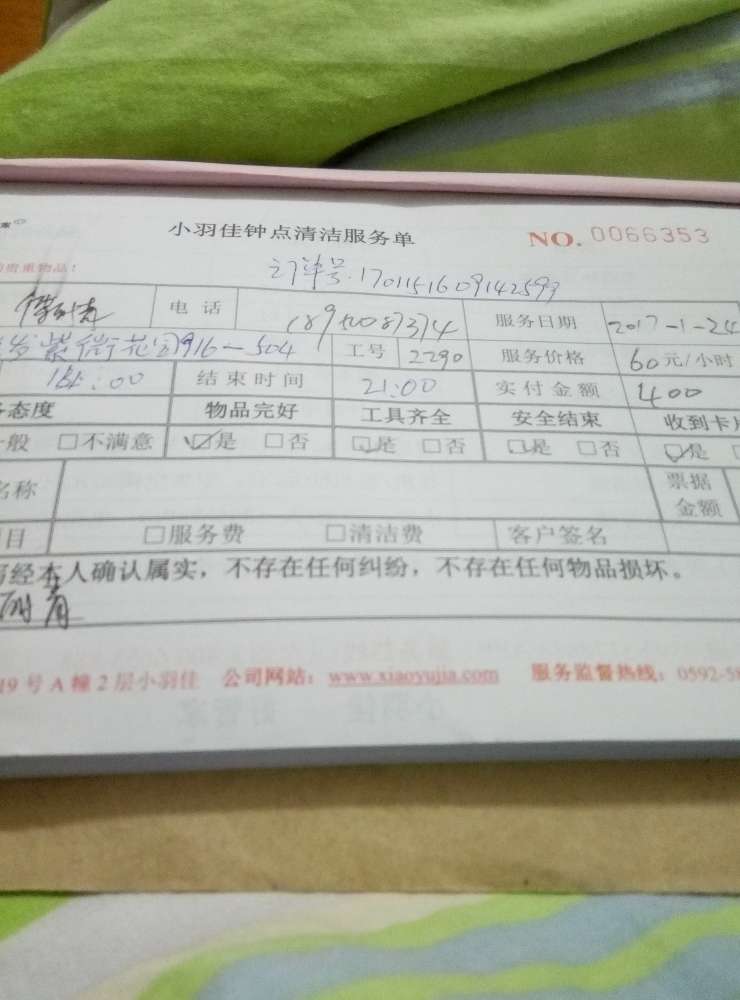 家
小羽佳钟点清洁服务单 NO. 0066353
贵重物品！ 订单号:1701151609142593
电 话 服务日期 2017-1-24
紫薇花园916-504 工号 2290 服务价格 60元/小时
:00 结束时间 21:00 实付金额 400
态度 物品完好 工具齐全 安全结束 收到卡
般 □不满意 ☑是 □否 ☑是 □否 ☑是 □否 ☑是
名称 票据
金额
目 □服务费 □清洁费 客户签名
经本人确认属实，不存在任何纠纷，不存在任何物品损坏。
19号A幢2层小羽佳 公司网站：www.xiaoyujia.com 服务监督热线：0592-5